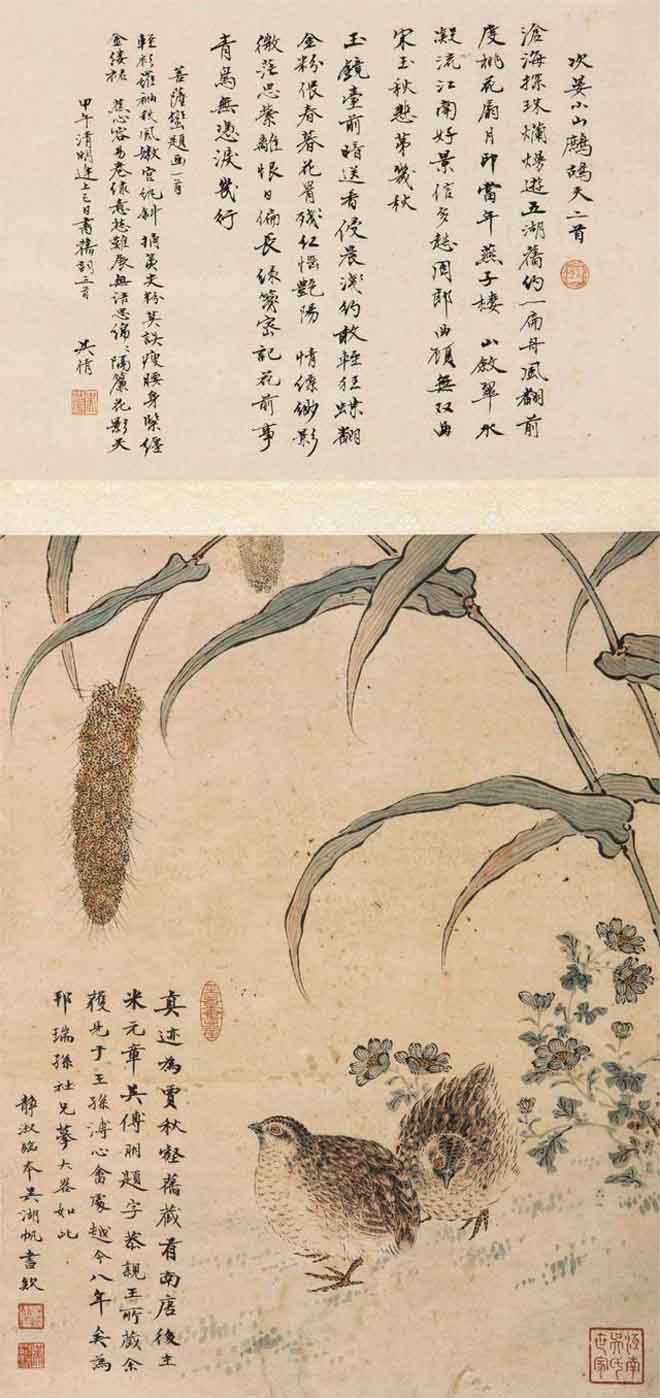 次晏小山鷓鴣天二首
滄海探珠爛熳遊五湖舊約一扁舟風翻前
度桃花扇月印當年燕子樓 山斂翠水
凝流江南好景信多愁周郎曲顧無双曲
宋玉秋悲第幾秋
玉鏡臺前暗送香侵晨淺約敢輕狂蝶翻
金粉偎春暮花胃殘紅惱艷陽 情縹緲影
微茫思縈離恨日偏長綠箋密記花前事
青鳥無憑淚幾行
菩薩蠻題画一首
輕衫羅袖秋風嫩宮紈斜 粉莫誤瘦腰身
金縷裙 蕉心容易卷綠意愁難展無語思綿綿隔簾花影天
甲午清明逢上巳日書舊詞三首 吳倩
真迹為賈秋壑舊藏有南唐後主
米元章吳傅朋題字恭親王所藏余
獲見于王孫溥心畬處越今八年矣為
邦瑞孫社兄摹大略如此
靜淑臨本吳湖帆書款
江南吳氏世家